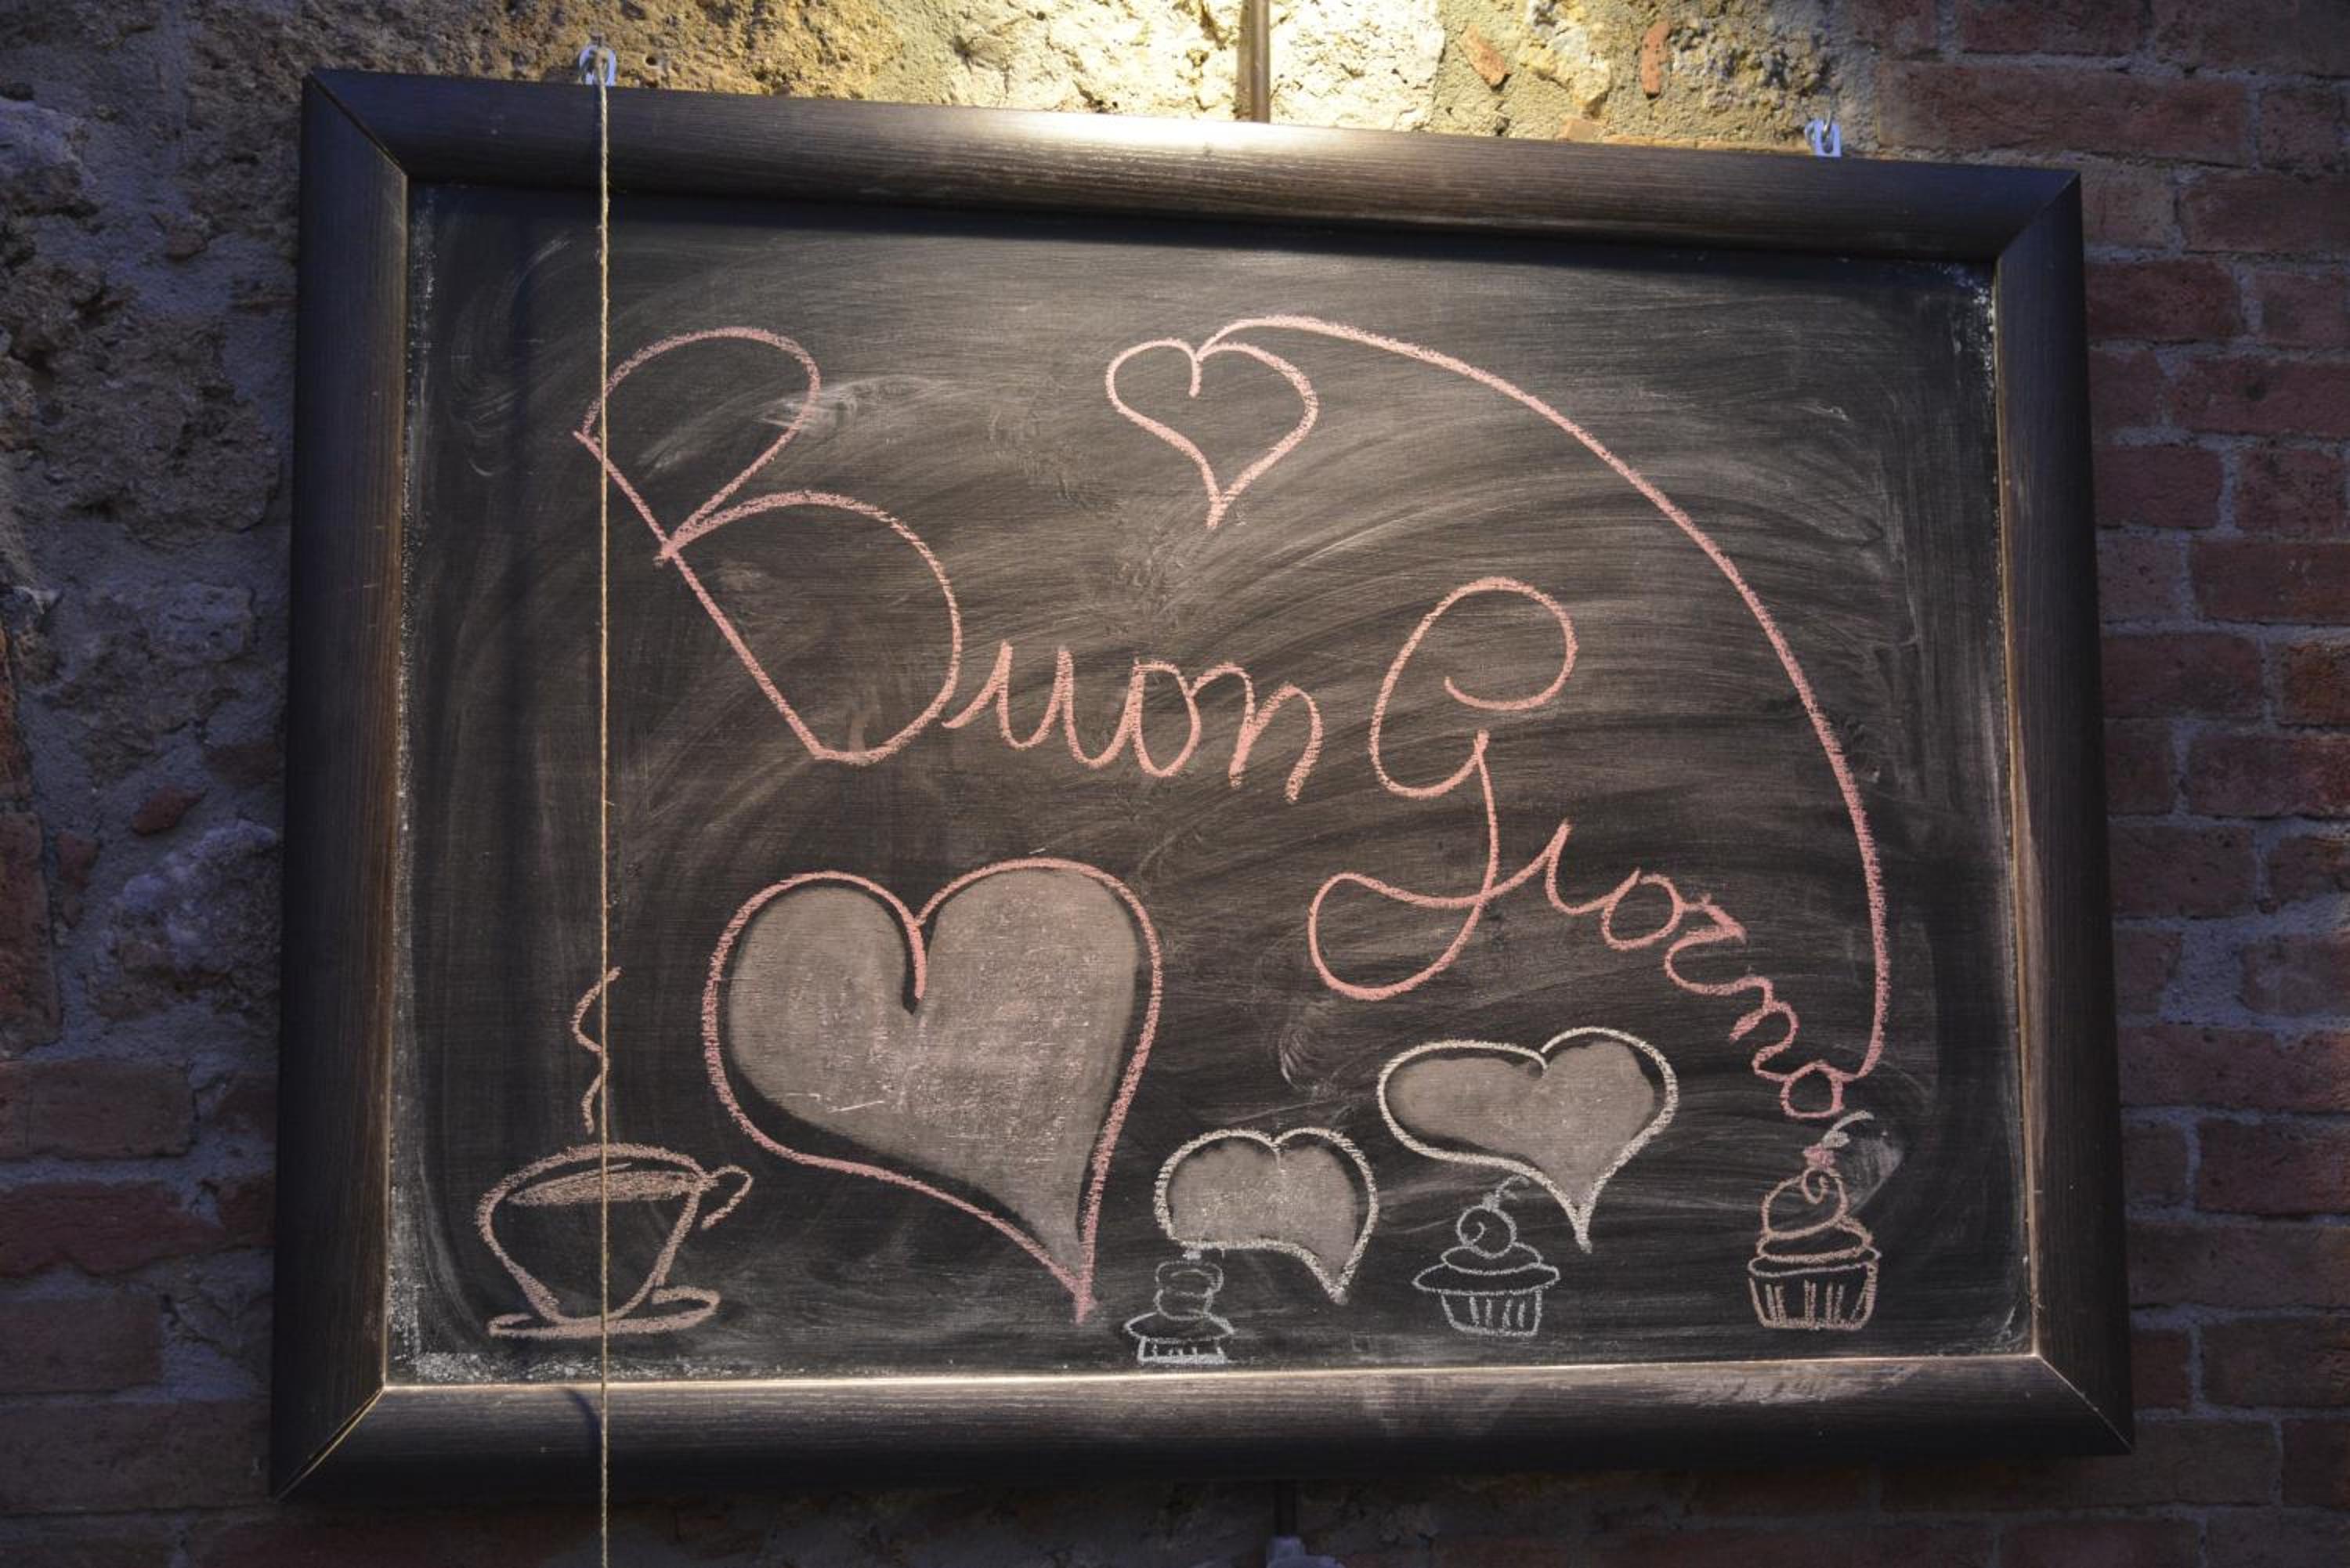 Buon Giorno